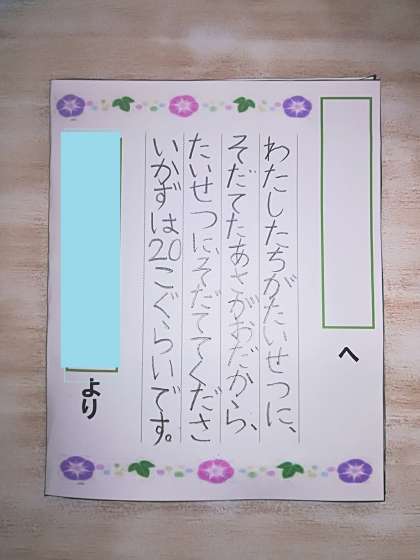 へ
わたしたちがたいせつに、
そだてたあさがおだから、
たいせつに、そだててくださ
いかずは20こぐらいです。
より